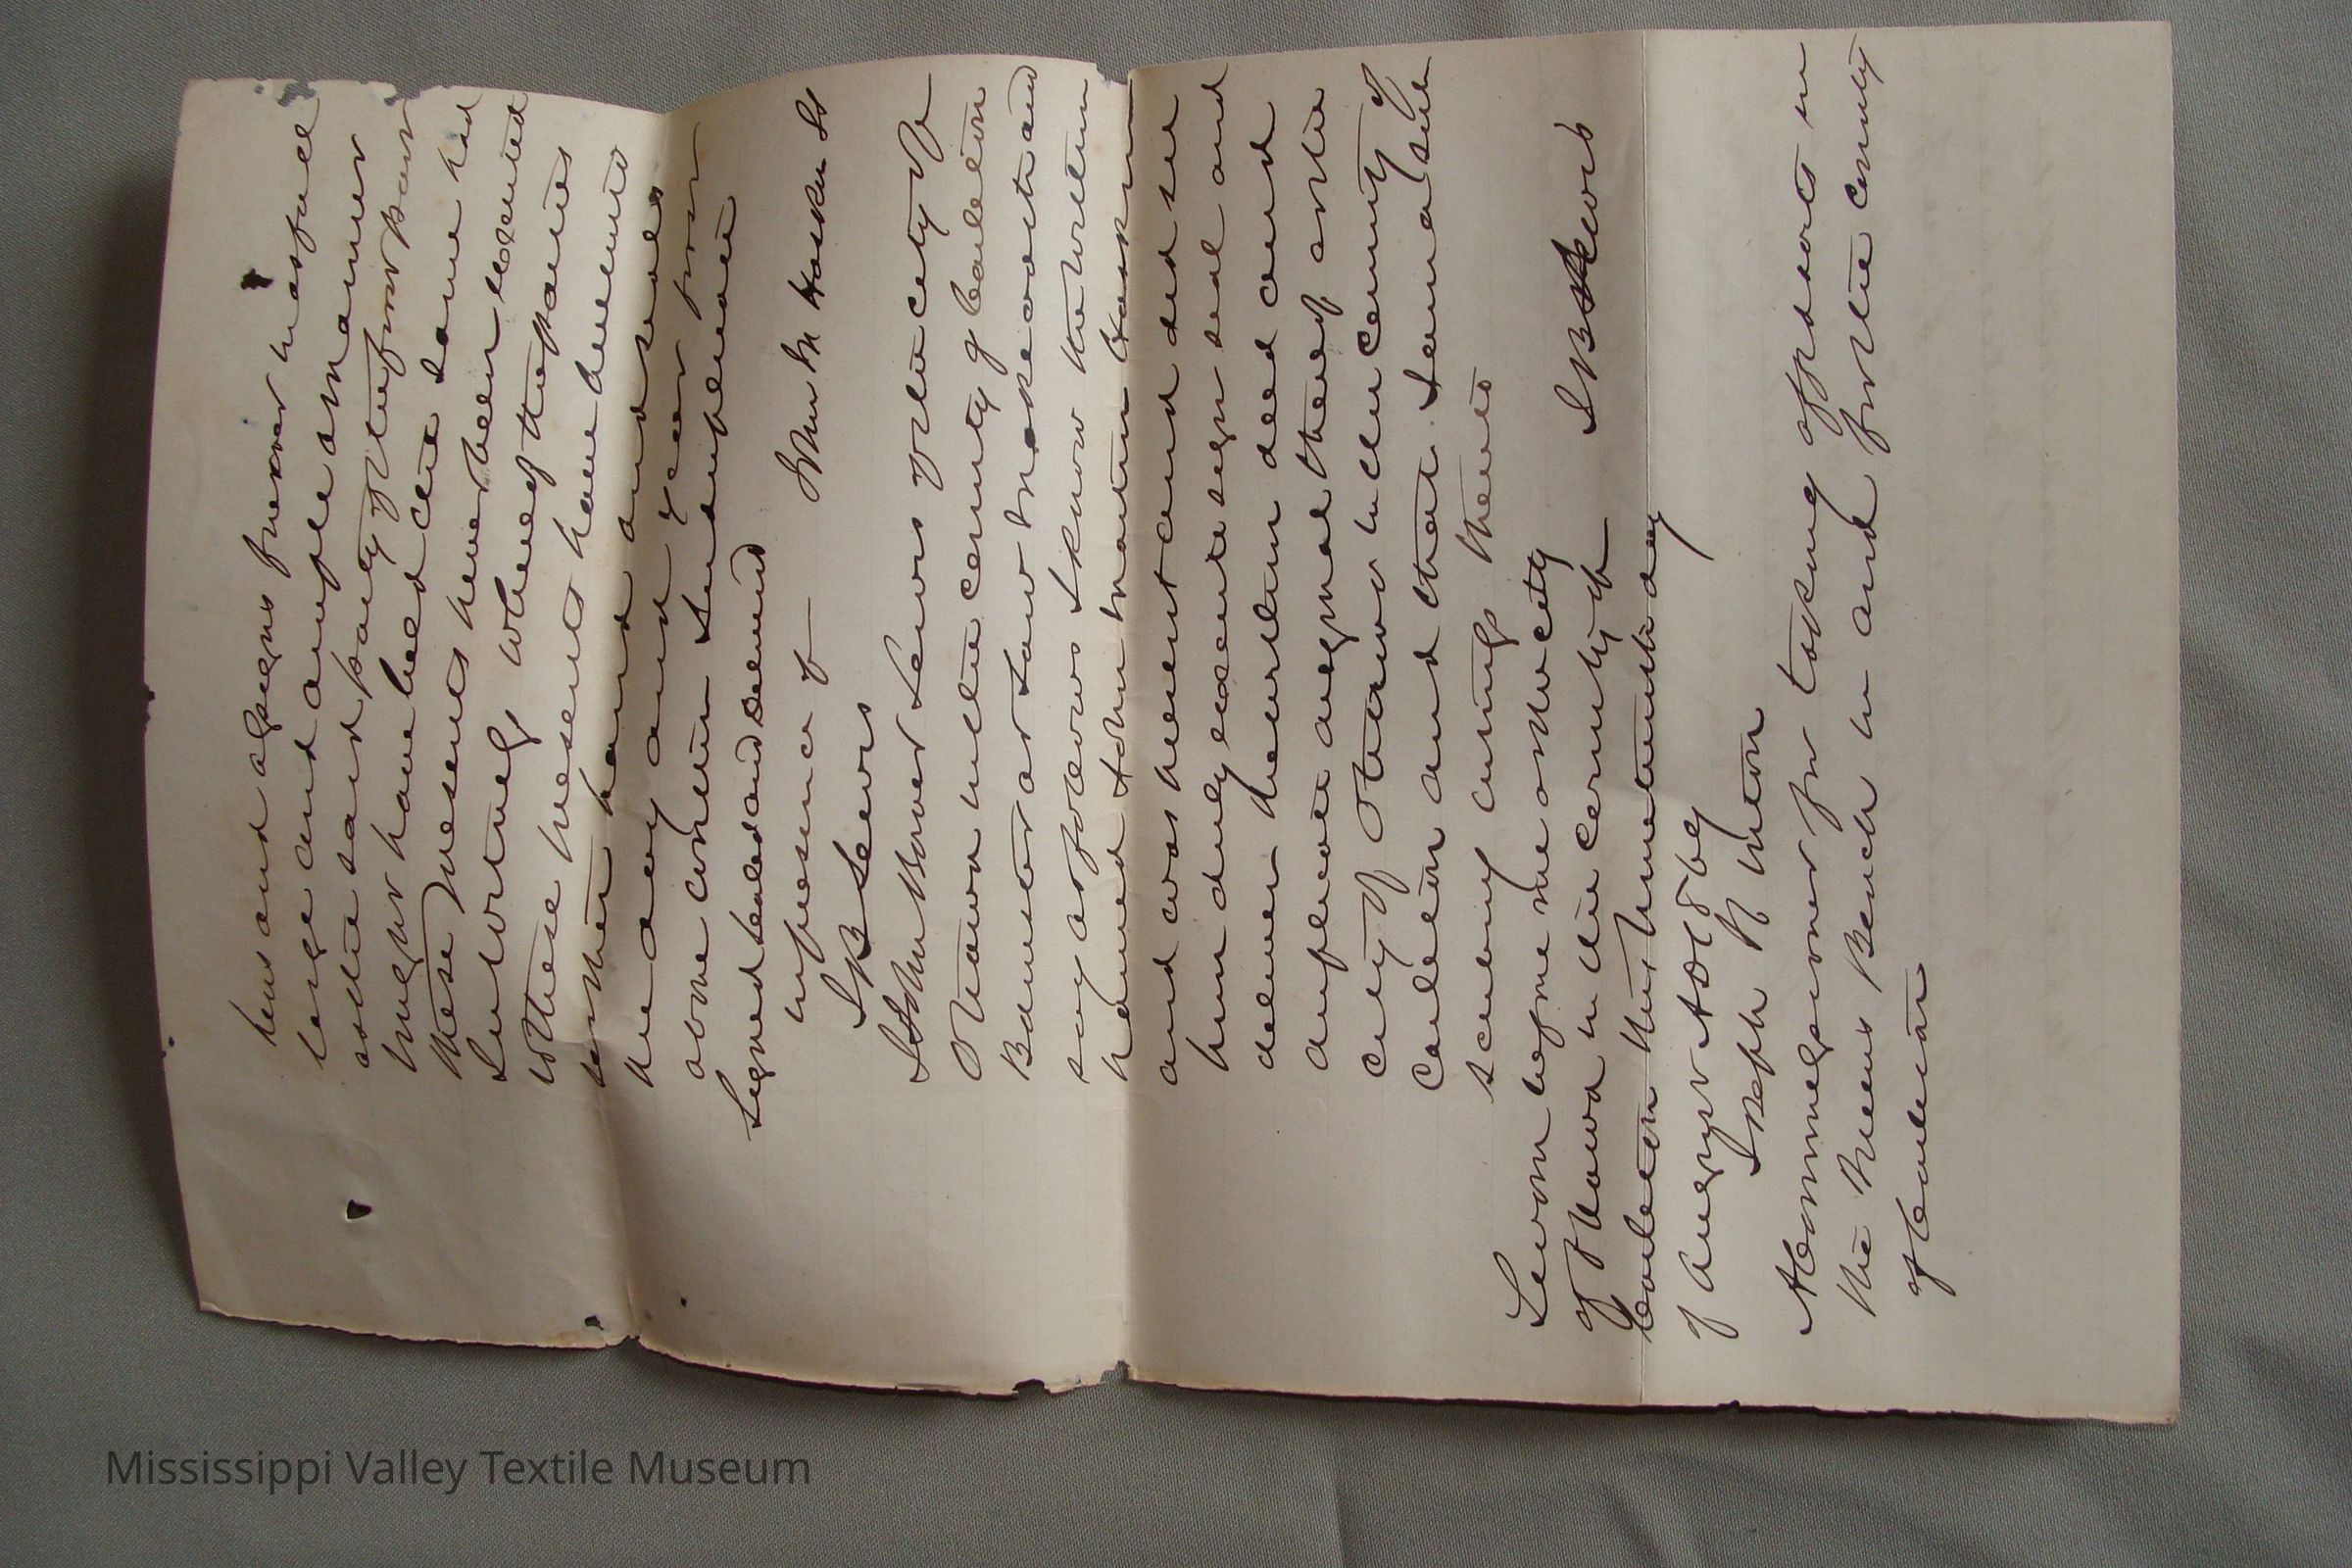 heirs and assigns forever in as full
large and ample a manner
as the said party of the first part
might have held the same had
these presents never been executed
In Witness whereof the parties
to these presents have hereunto
set their hand and seals
the day and year first
above written
Signed Sealed and Delivered
in presence of John M Haskin LS
J B Lewis
I John Bower Lewis of the city of
Ottawa in the county of Carleton
Barrister at Law make oath and
say as follows I know the within
named John Martin Haskin
and was present and did see
him duly execute sign seal and
deliver the within deed and
duplicate original thereof at the
city of Ottawa in the county of
Carleton and that I am a sub
scribing witness thereto
Sworn before me at the city
of Ottawa in the county of J B Lewis
Carleton this nineteenth day
of August AD 18
Joseph R
A Commissioner for taking affidavits in
the Queens Bench in and for the county
of Carleton
Mississippi Valley Textile Museum